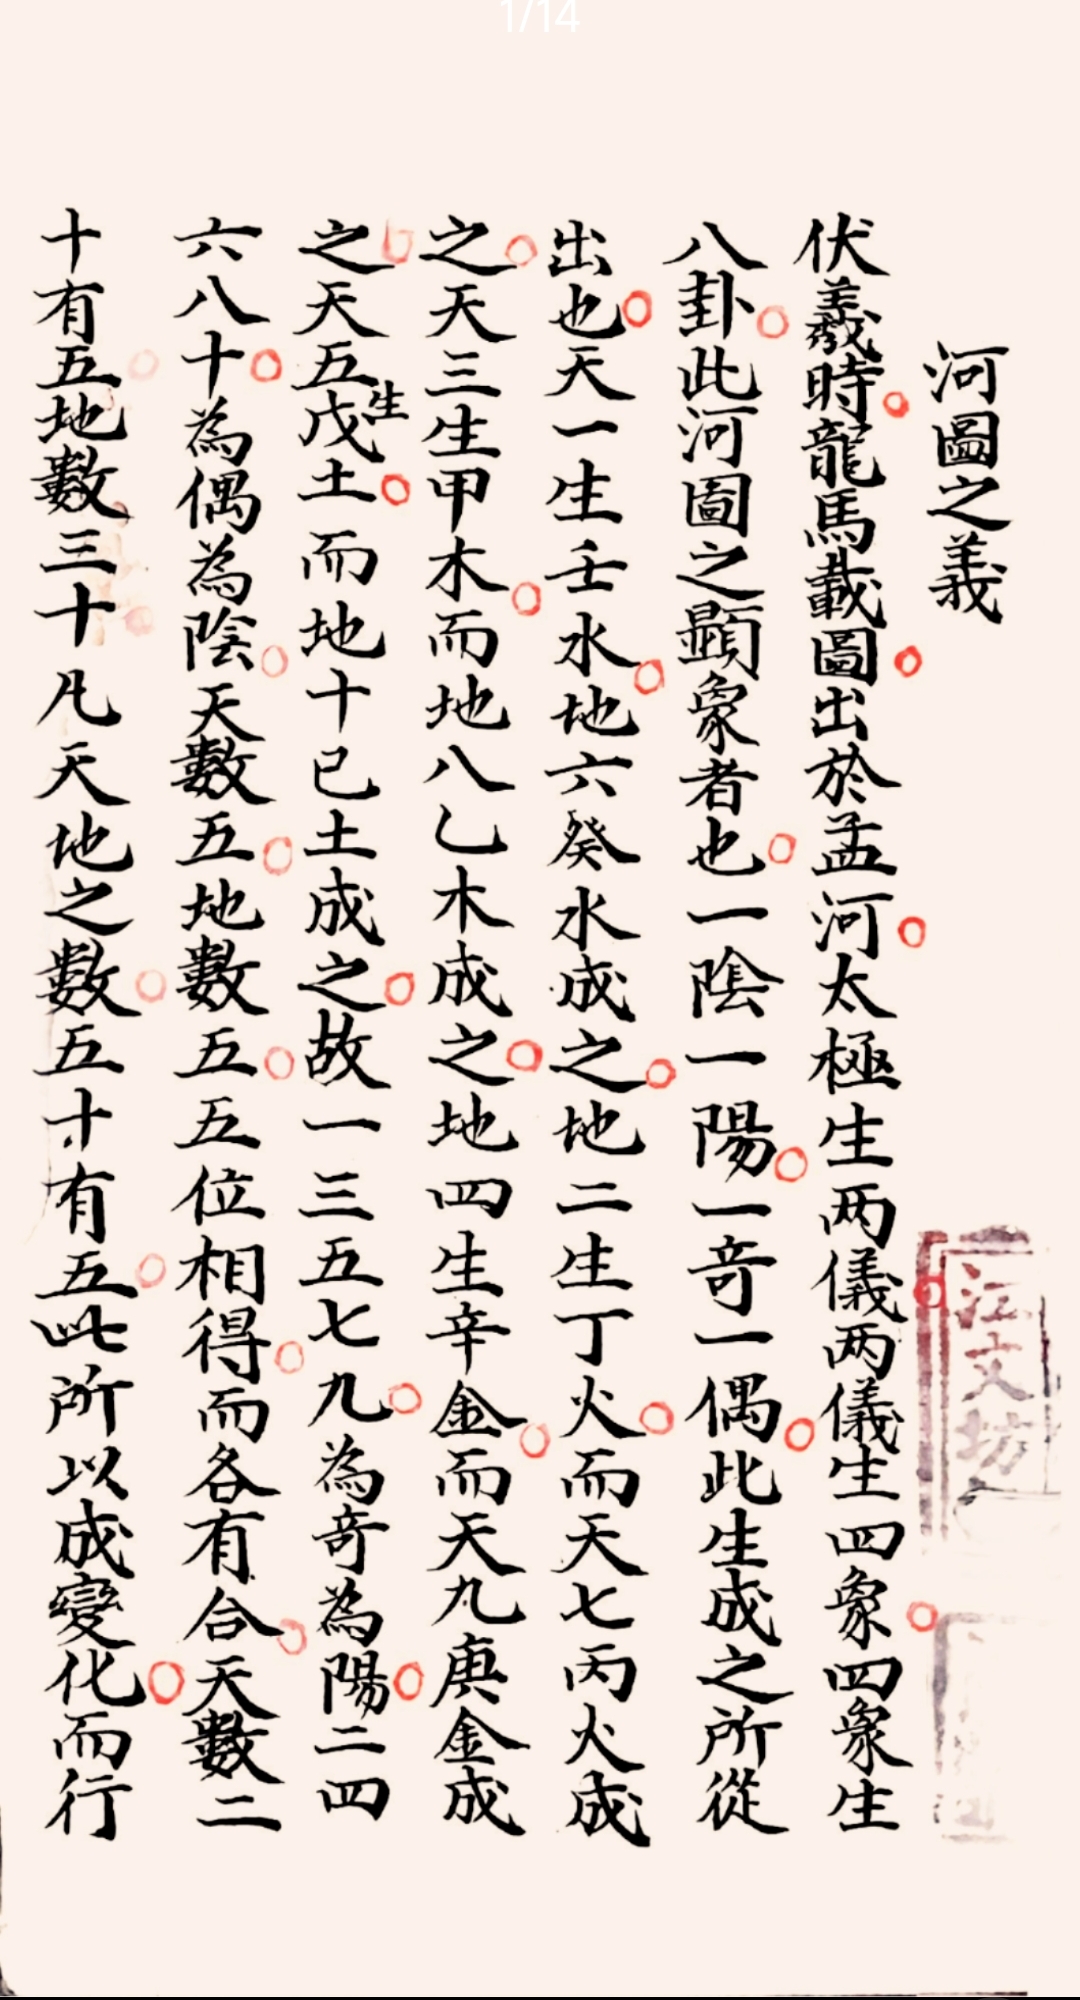 1/14
河圖之義
伏羲時龍馬載圖出於孟河太極生两儀两儀生四象四象生
八卦此河圖之顕象者也一陰一陽一竒一偶此生成之所從
出也天一生壬水地六癸水成之地二生丁火而天七丙火成
之天三生甲木而地八乙木成之地四生辛金而天九庚金成
之天五生戊土而地十已土成之故一三五七九為竒為陽二四
六八十為偶為陰天數五地數五五位相得而各有合天數二
十有五地數三十凡天地之數五十有五此所以成變化而行
江文坊